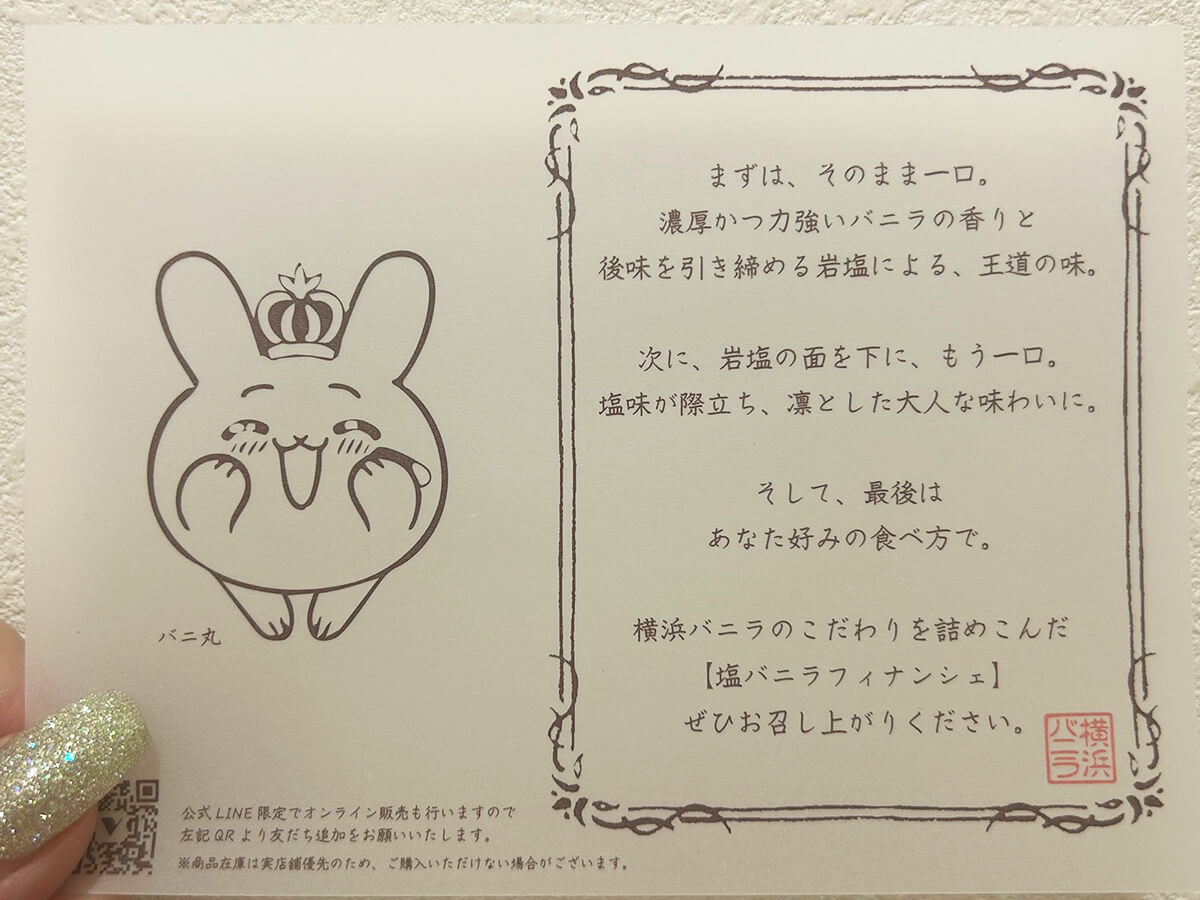 まずは、そのまま一口。
濃厚かつ力強いバニラの香りと
後味を引き締める岩塩による、王道の味。
次に、岩塩の面を下に、もう一口。
塩味が際立ち、凛とした大人な味わいに。
そして、最後は
あなた好みの食べ方で。
横浜バニラのこだわりを詰めこんだ
【塩バニラフィナンシェ】
ぜひお召し上がりください。
横浜
バニラ
バニ丸
公式LINE限定でオンライン販売も行いますので
左記QRより友だち追加をお願いいたします。
※商品在庫は実店舗優先のため、ご購入いただけない場合がございます。